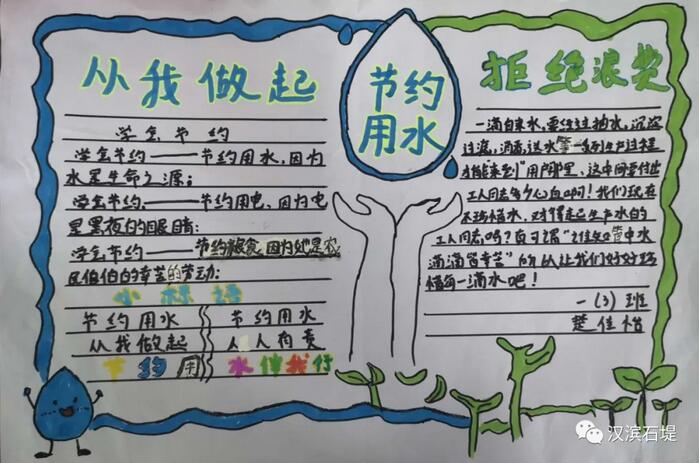 从我做起
学会节约
学会节约——节约用水,因为
水是生命之源;
学会节约——节约用电,因为电
是黑夜的眼睛;
学会节约——节约粮食,因为她是农
民伯伯的辛苦的劳动;
小标语
节约用水
从我做起
节约用水
节约用水
人人有责
水伴我行
节约
用水
拒绝浪费
一滴自来水,要经过抽水,沉淀
过滤,消毒,送水等一系列生产过程
才能"来到"用户那里,这中间要付出
工人同志多少心血啊!我们现在
不珍惜水,对得起生产水的
工人同志吗?真可谓"谁知管中水
滴滴皆辛苦"所以让我们好好珍
惜每一滴水吧!
一(3)班
楚佳怡
汉滨石堤